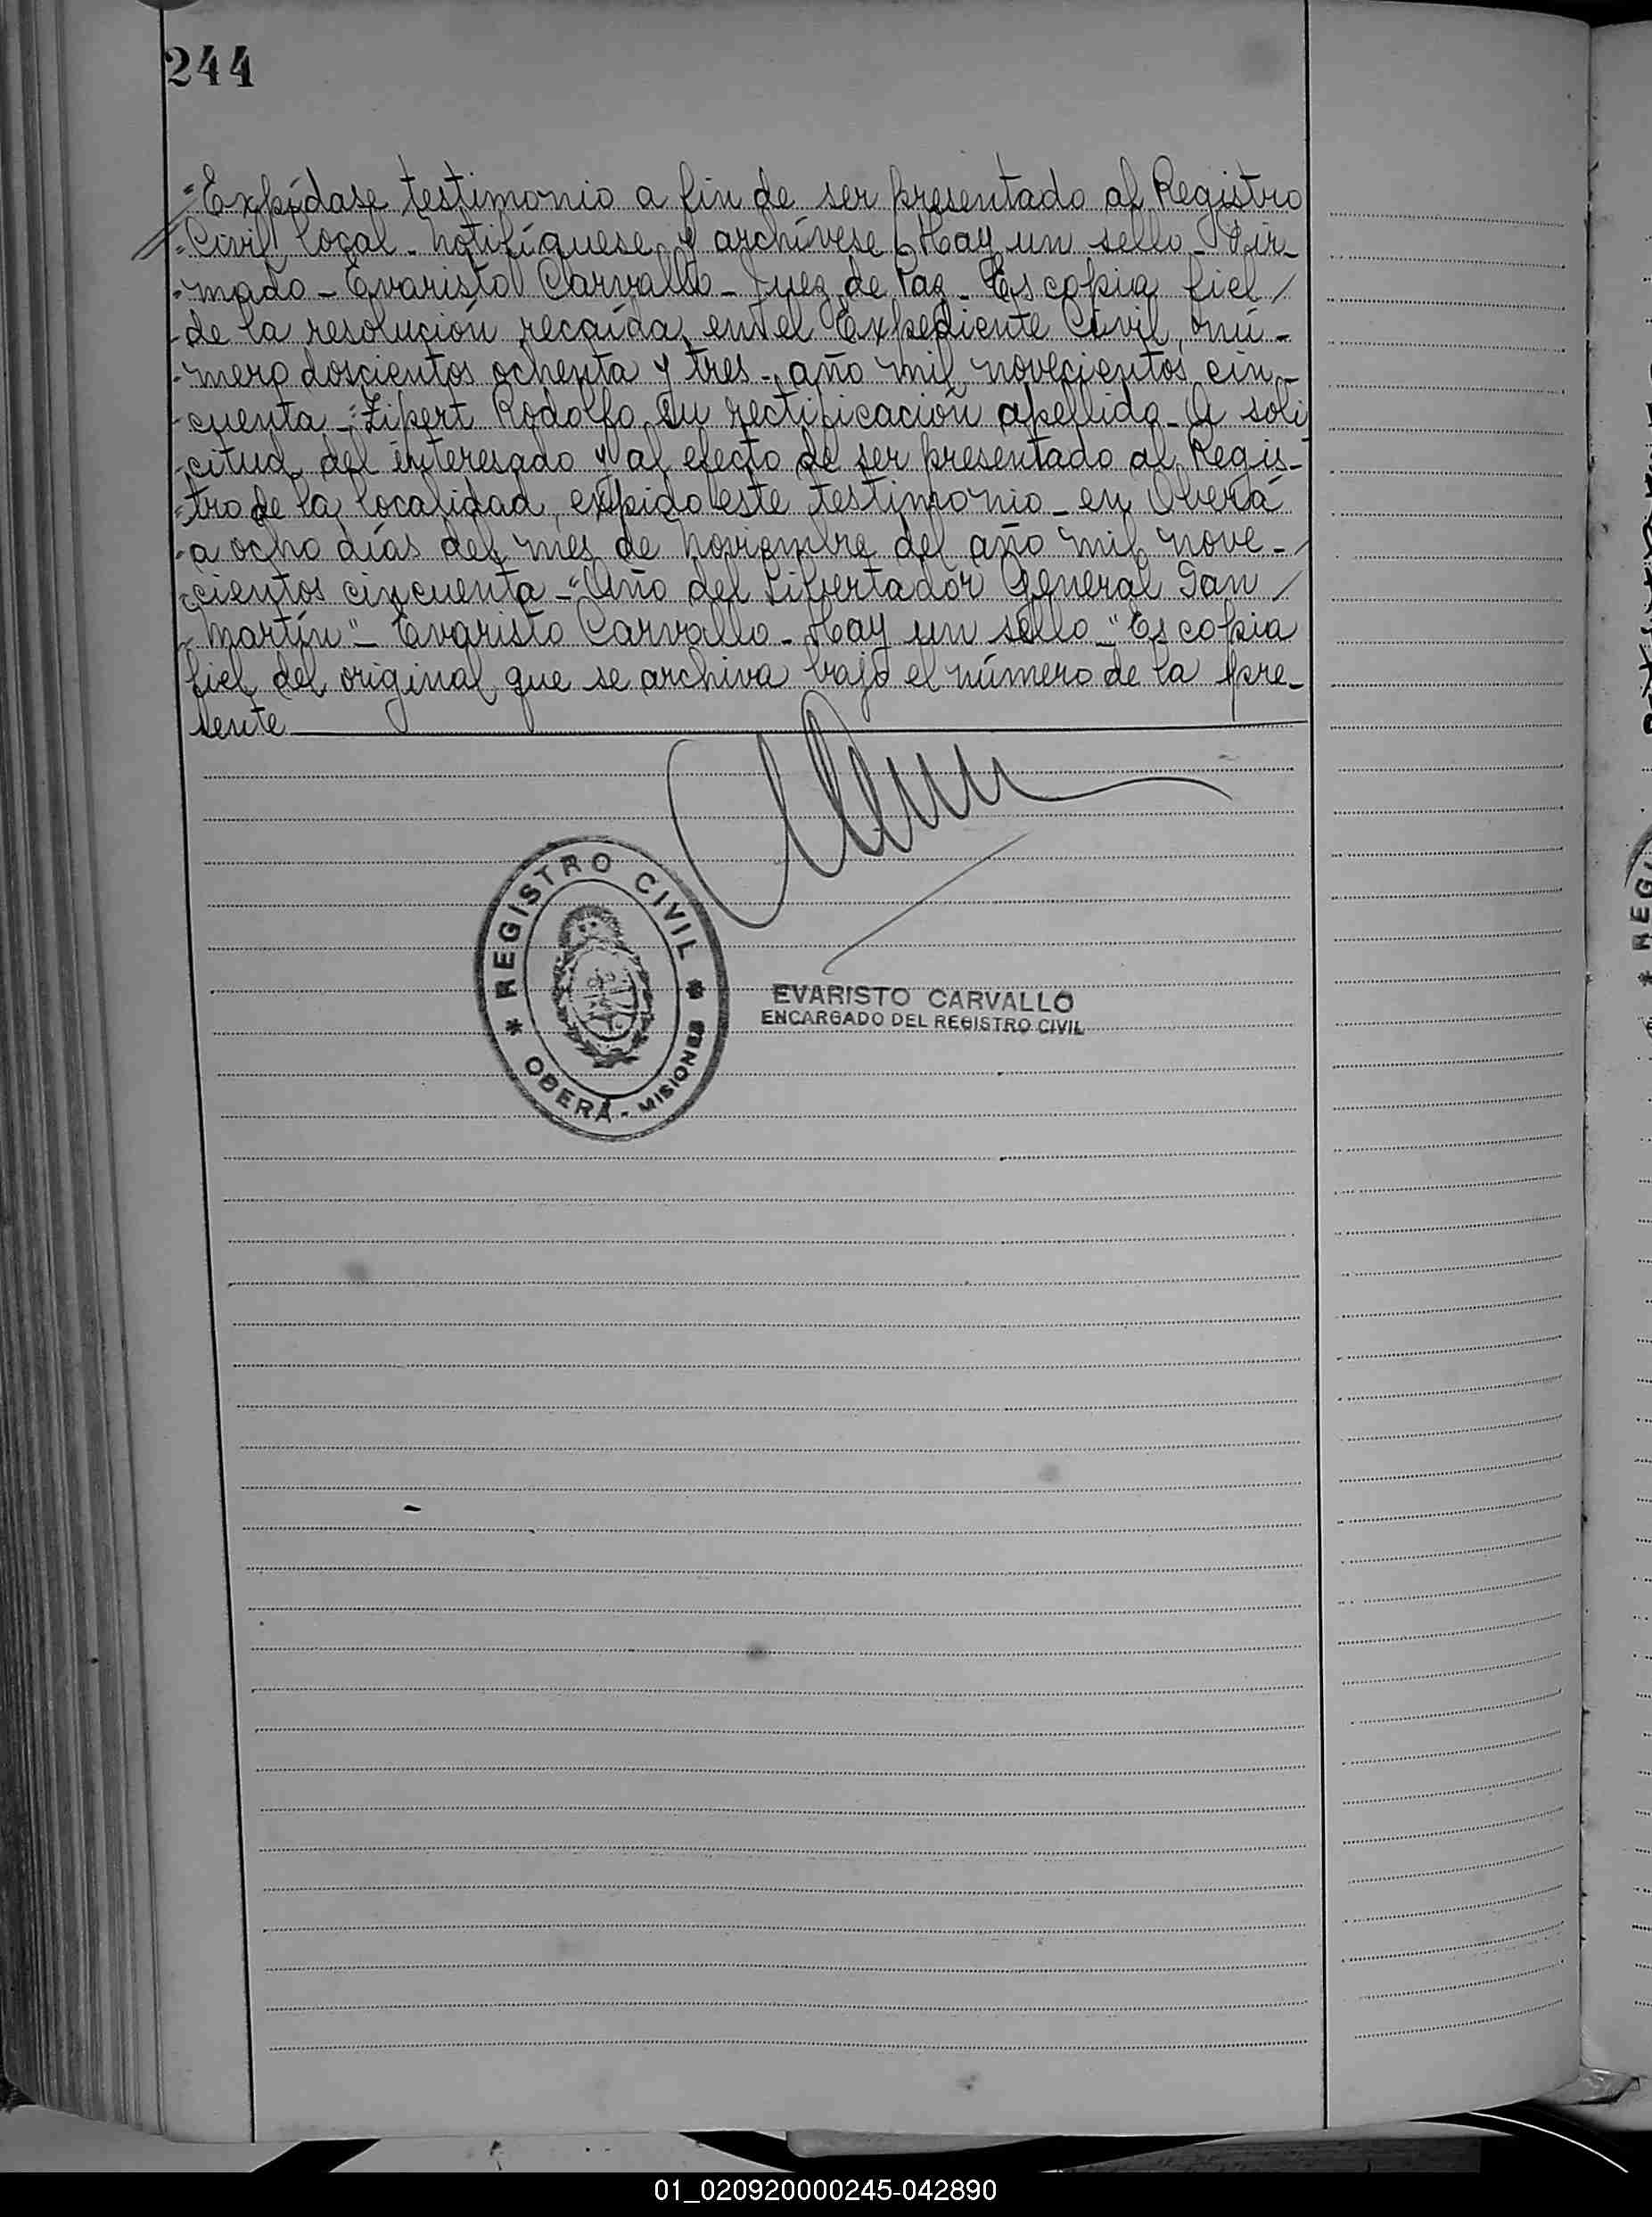 244
"Expídase testimonio a fin de ser presentado al Registro
"Civil local - Notifíquese y archívese - Hay un sello - Fir-
"mado - Evaristo Carvallo - Juez de Paz - Es copia fiel /
"de la resolución recaída en el Expediente Civil nú-
"mero doscientos ochenta y tres - año mil novecientos cin-
"cuenta - "Zipert Rodolfo su rectificación apellido - A soli
"citud del interesado y al efecto de ser presentado al Regis-
"tro de la localidad, expido este testimonio - en Oberá
"a ocho días del mes de Noviembre del año mil nove- /
"cientos cincuenta - "Año del Libertador General San /
"Martín" - Evaristo Carvallo - Hay un sello -" Es copia
fiel del original que se archiva bajo el número de la pre-
sente
REGISTRO CIVIL
* OBERÁ - MISIONES *
EVARISTO CARVALLO
ENCARGADO DEL REGISTRO CIVIL
01_020920000245-042890